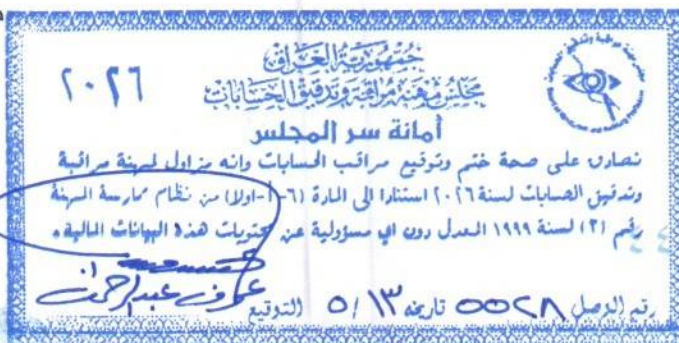 جمهورية العراق
مجلس مهنة مراقبة وتدقيق الحسابات
٢٠٢٦
أمانة سر المجلس
نصادق على صحة ختم وتوقيع مراقب الحسابات وانه مزاول لمهنة مراقبة
وتدقيق الحسابات لسنة ٢٠٢٦ استنادا الى المادة (٦-أ-اولا) من نظام ممارسة المهنة
رقم (٣) لسنة ١٩٩٩ المعدل دون اي مسؤولية عن محتويات هذه البيانات المالية.
رقم الوصل ٥٥٢٨ تاريخه ٥/١٣ التوقيع